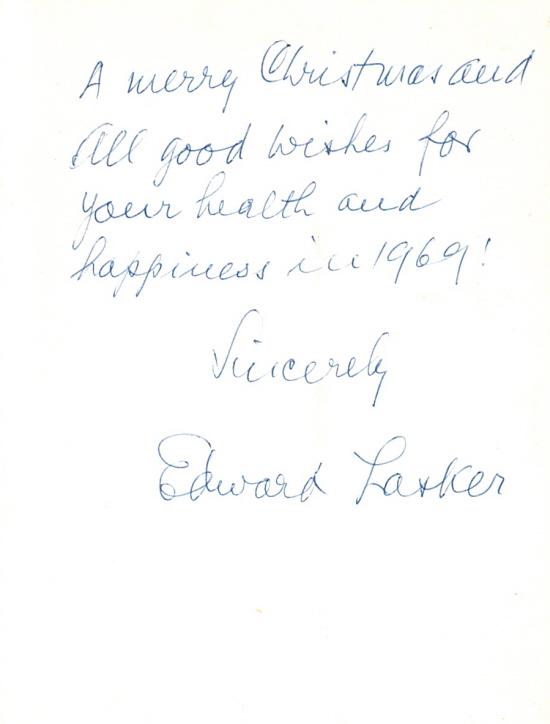 A merry Christmas and
All good wishes for
your health and
happiness in 1969!
Sincerely
Edward Lasker